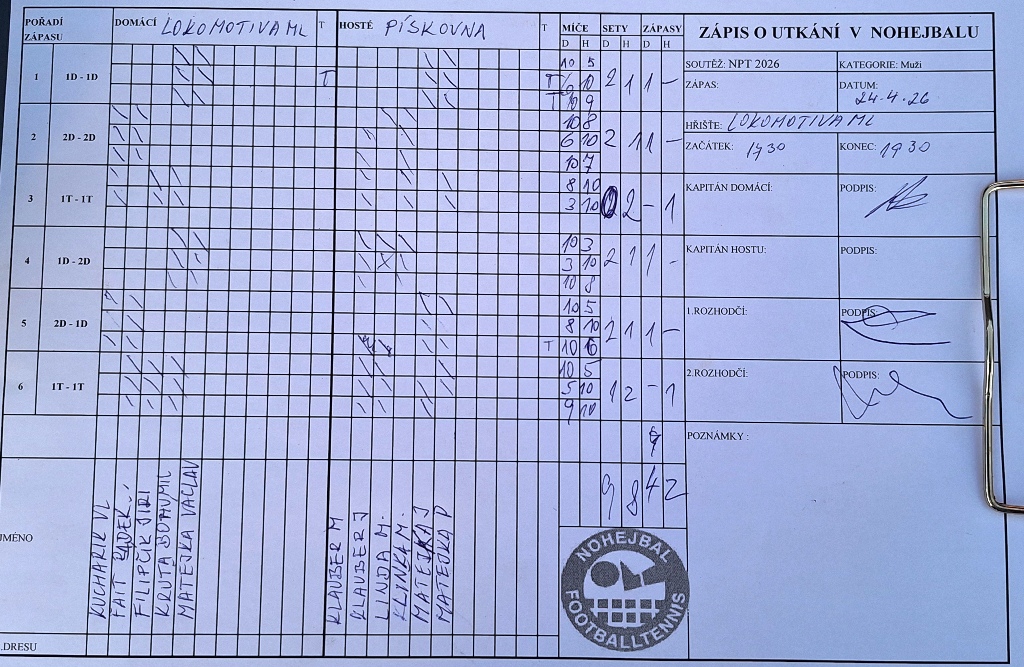 POŘADÍ ZÁPASU DOMÁCÍ LOKOMOTIVA ML T HOSTÉ PÍSKOVNA T MÍČE SETY ZÁPASY
D H D H D H
ZÁPIS O UTKÁNÍ V NOHEJBALU
SOUTĚŽ: NPT 2026 KATEGORIE: Muži
ZÁPAS: DATUM: 24.4.26
HŘIŠTĚ: LOKOMOTIVA ML
ZAČÁTEK: 1730 KONEC: 1930
KAPITÁN DOMÁCÍ: PODPIS:
KAPITÁN HOSTU: PODPIS:
1.ROZHODČÍ: PODPIS:
2.ROZHODČÍ: PODPIS:
POZNÁMKY :
1 1D - 1D T 2 1 1 -
10 5
T 10
T 10 9
2 2D - 2D 2 1 1 -
10 8
6 10
10 7
3 1T - 1T 2 - 1
8 10
3 10
4 1D - 2D 2 1 1 -
10 3
3 10
10 8
5 2D - 1D 2 1 1 -
10 5
8 10
T 10 6
6 1T - 1T 1 2 - 1
10 5
5 10
9 10
9 8 4 2
JMÉNO
KUCHARIK VL
FAIT RADEK
FILIPČÍK JIRI
KRUTA BOHUMIL
MATEJKA VACLAV
KLAUBER M
KLAUBER J
LINDA M.
KLINKA M.
MATEJKA J
MATEJKA P
Č.DRESU
NOHEJBAL
FOOTBALLTENNIS